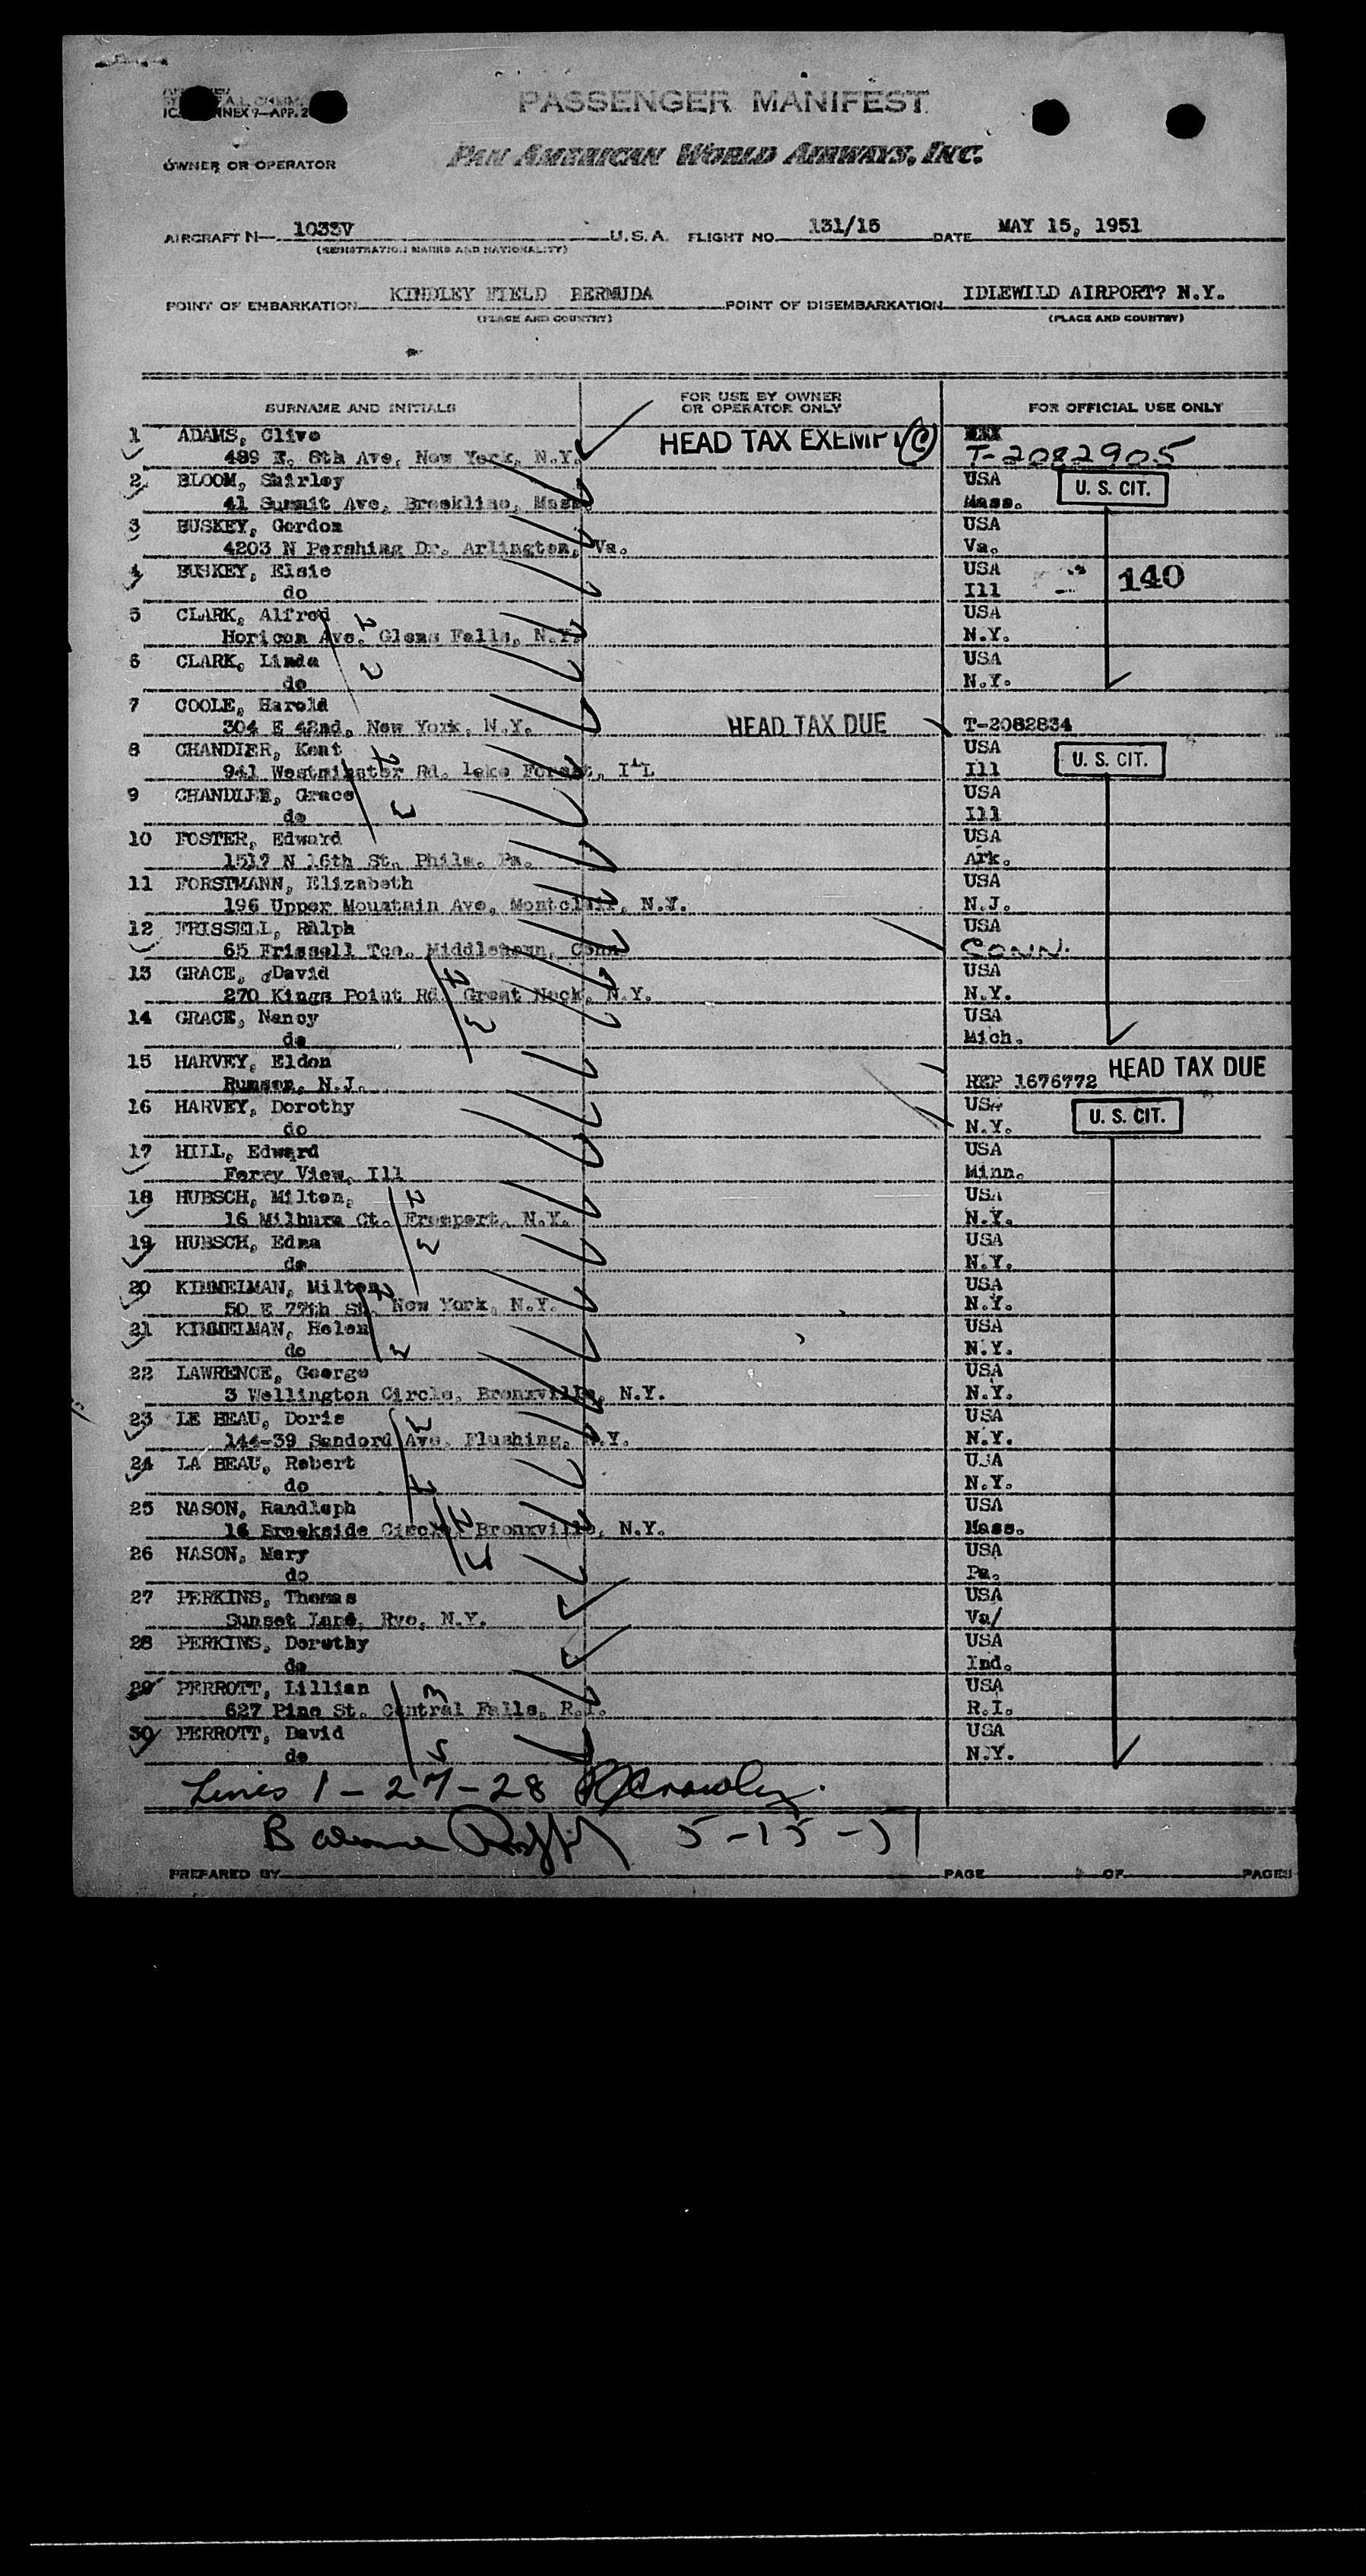 ICAO ANNEX 9—APP. 2
PASSENGER MANIFEST
OWNER OR OPERATOR
PAN AMERICAN WORLD AIRWAYS, INC.
AIRCRAFT N— 1033V U.S.A. FLIGHT NO. 131/15 DATE MAY 15, 1951
(REGISTRATION MARKS AND NATIONALITY)
POINT OF EMBARKATION KINDLEY FIELD BERMUDA POINT OF DISEMBARKATION IDIEWILD AIRPORT? N.Y.
(PLACE AND COUNTRY) (PLACE AND COUNTRY)
SURNAME AND INITIALS FOR USE BY OWNER OR OPERATOR ONLY FOR OFFICIAL USE ONLY
1 ADAMS, Clive HEAD TAX EXEMPT (C)
489 E. 8th Ave, New York, N.Y. T-2082905
2 BLOOM, Shirley USA U. S. CIT.
41 Summit Ave, Brookline, Mass. Mass.
3 BUSKEY, Gordon USA
4203 N Pershing Dr. Arlington, Va. Va.
4 BUSKEY, Elsie USA 140
do Ill
5 CLARK, Alfred 2 USA
Horicon Ave. Glens Falls, N.Y. N.Y.
6 CLARK, Linda 2 USA
do N.Y.
7 COOLE, Harold
304 E 42nd, New York, N.Y. HEAD TAX DUE T-2082834
8 CHANDIER, Kent USA U. S. CIT.
941 Westminster Rd. lake Forest, ILL Ill
9 CHANDLER, Grace 3 USA
do Ill
10 FOSTER, Edward USA
1517 N 16th St. Phila. Pa. Ark.
11 FORSTMANN, Elizabeth USA
196 Upper Mountain Ave, Montclair, N.Y. N.J.
12 FRISSELL, Ralph USA
65 Frissell Tce. Middletown, Conn CONN.
13 GRACE, David USA
270 Kings Point Rd. Great Neck, N.Y. N.Y.
14 GRACE, Nancy 3 USA
do Mich.
15 HARVEY, Eldon HEAD TAX DUE
Rumson, N.J. REP 1676772
16 HARVEY, Dorothy USA U. S. CIT.
do N.Y.
17 HILL, Edward USA
Ferry View, Ill Minn.
18 HUBSCH, Milton, 2 USA
16 Milburn Ct. Freeport, N.Y. N.Y.
19 HUBSCH, Edna 3 USA
do N.Y.
20 KIMMELMAN, Milton 2 USA
50 E 77th St. New York, N.Y. N.Y.
21 KIMMELMAN, Helen USA
do 3 N.Y.
22 LAWRENCE, George USA
3 Wellington Circle, Bronxville, N.Y. N.Y.
23 LE BEAU, Doris USA
144-39 Sandord Ave. Flushing, N.Y. N.Y.
24 LA BEAU, Robert USA
do N.Y.
25 NASON, Randleph USA
16 Brookside Circle, Bronxville, N.Y. Mass.
26 NASON, Mary USA
do Pa.
27 PERKINS, Thomas USA
Sunset Land, Rye, N.Y. Va/
28 PERKINS, Dorothy USA
do Ind.
29 PERROTT, Lillian 3 USA
627 Pine St. Central Falls, R.I. R.I.
30 PERROTT, David USA
do 5 N.Y.
Lines 1 – 27 – 28 Crowley.
Balance 5-15-51
PREPARED BY PAGE OF PAGES